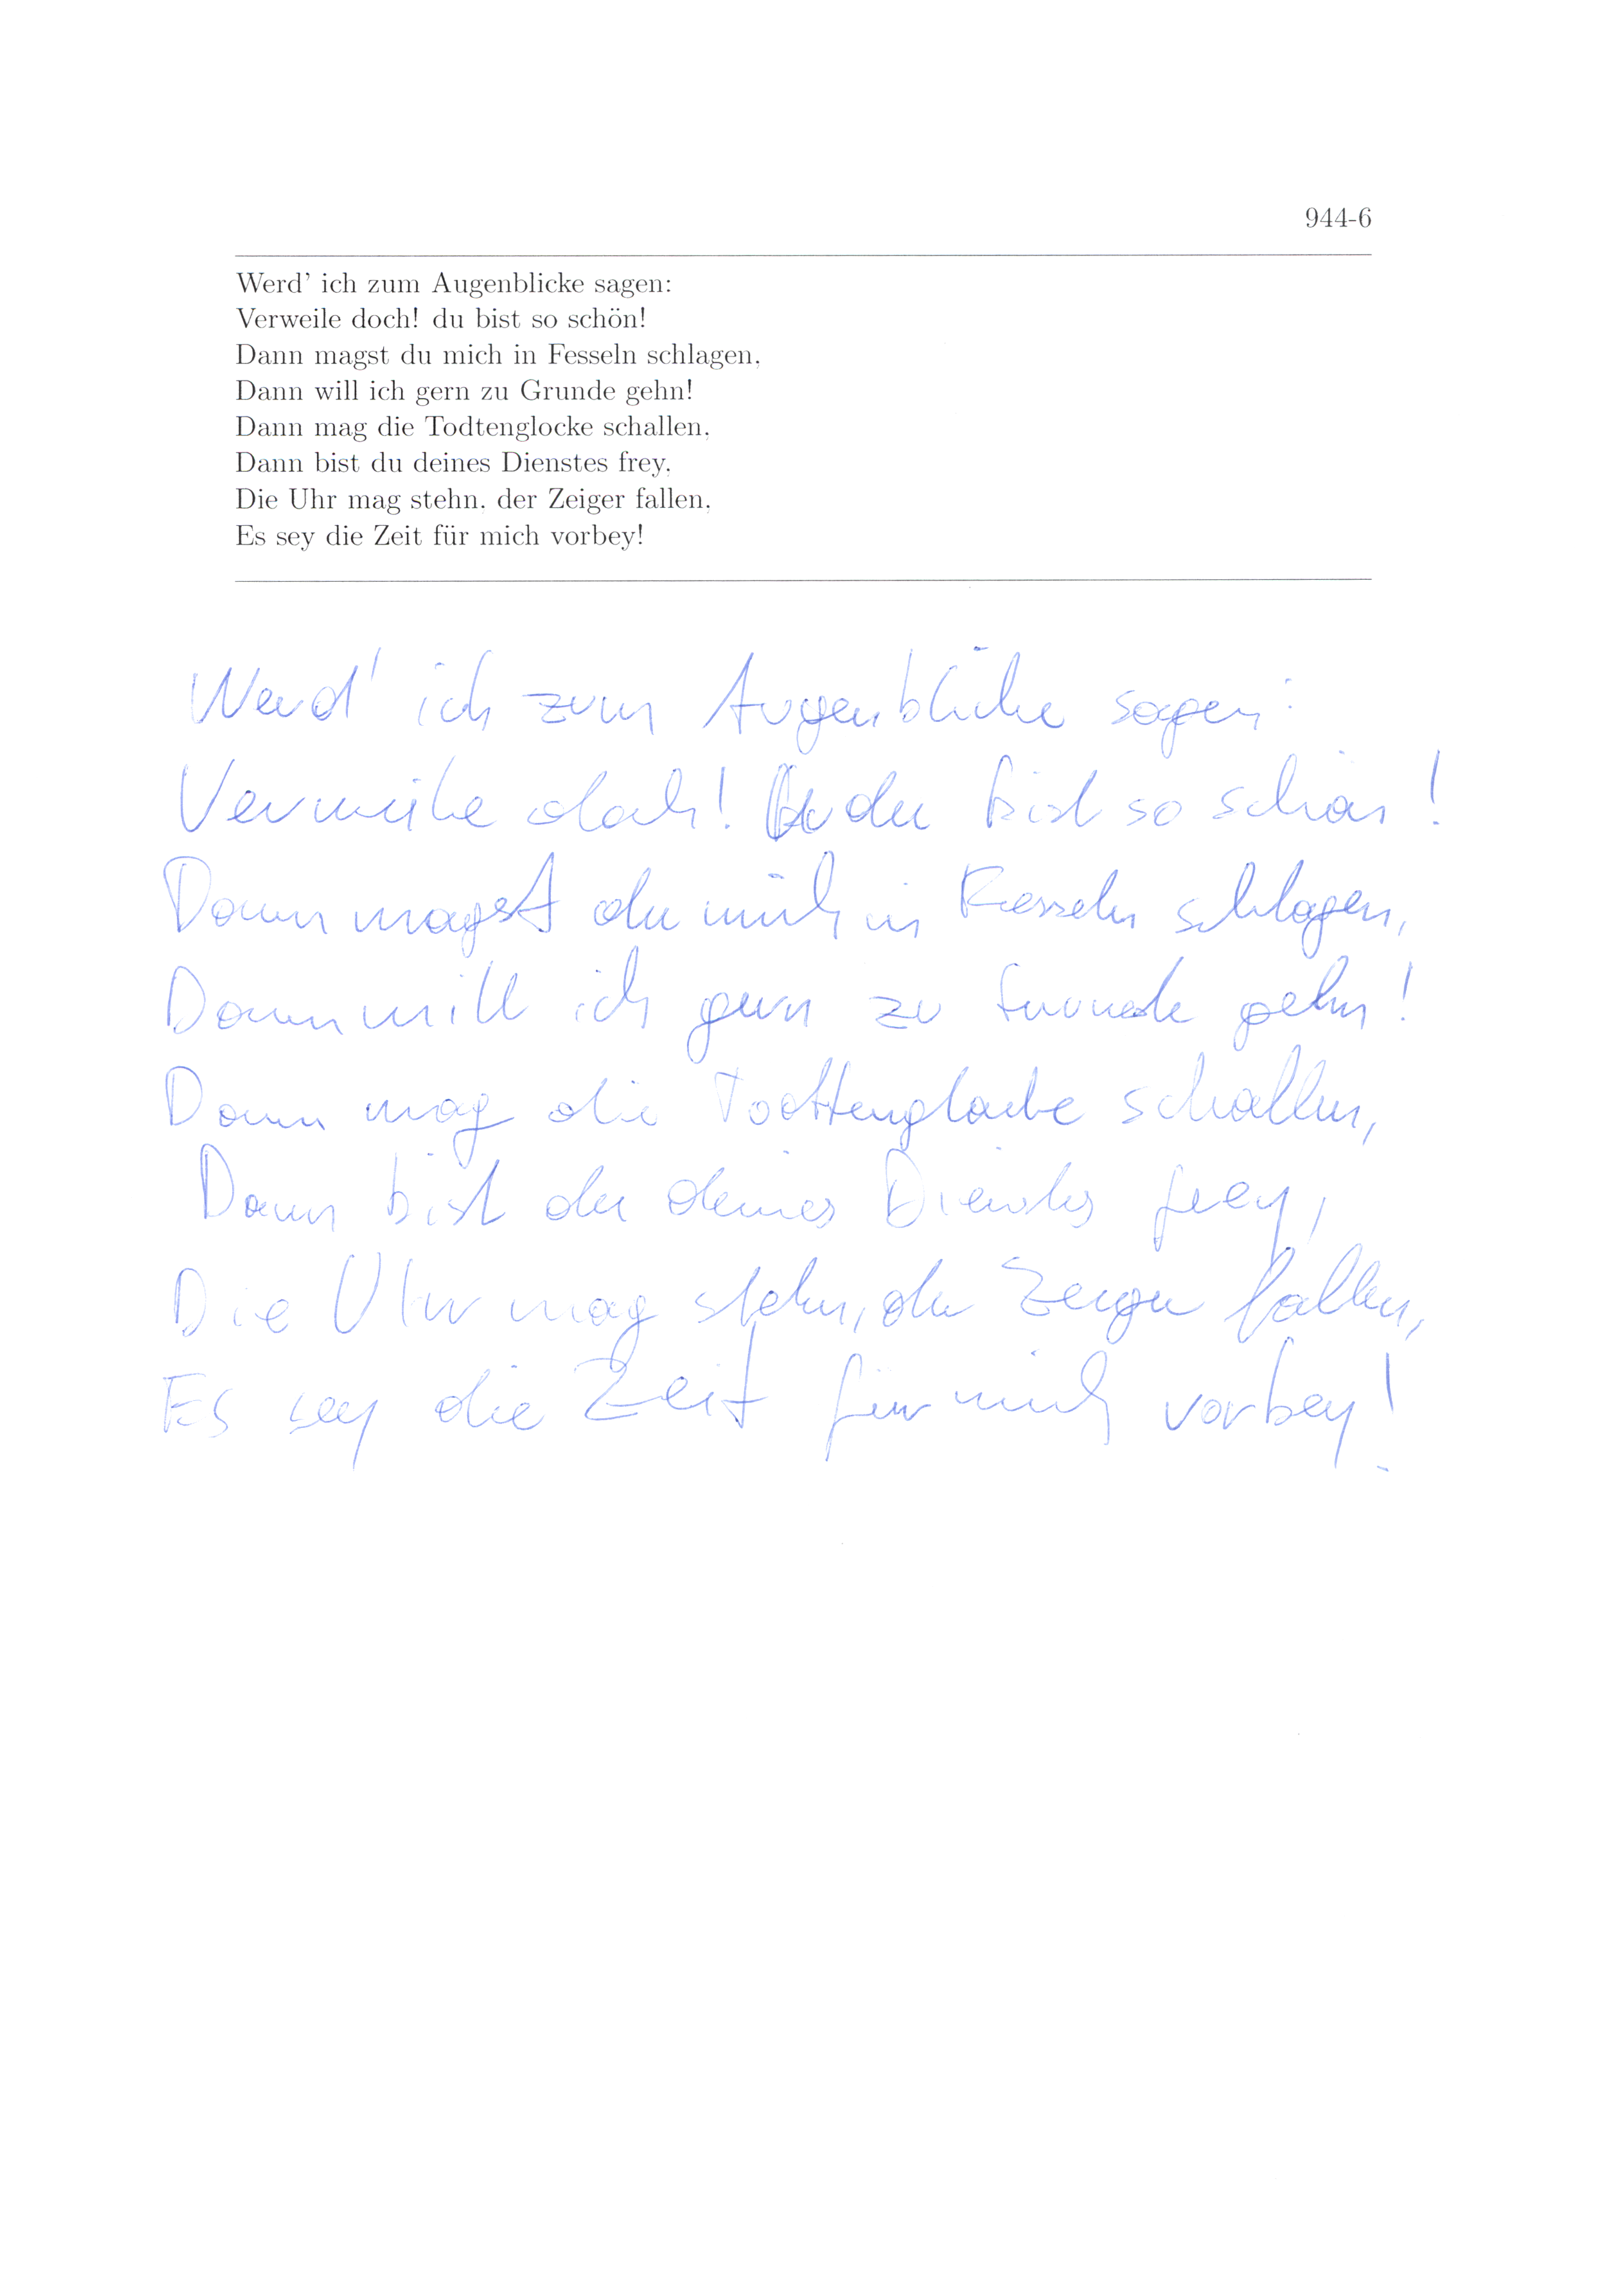 944-6
Werd' ich zum Augenblicke sagen:
Verweile doch! du bist so schön!
Dann magst du mich in Fesseln schlagen,
Dann will ich gern zu Grunde gehn!
Dann mag die Todtenglocke schallen,
Dann bist du deines Dienstes frey,
Die Uhr mag stehn, der Zeiger fallen,
Es sey die Zeit für mich vorbey!
Werd' ich zum Augenblicke sagen:
Verweile doch! du bist so schön!
Dann magst du mich in Fesseln schlagen,
Dann will ich gern zu Grunde gehn!
Dann mag die Todtenglocke schallen,
Dann bist du deines Dienstes frey,
Die Uhr mag stehn, der Zeiger fallen,
Es sey die Zeit für mich vorbey!